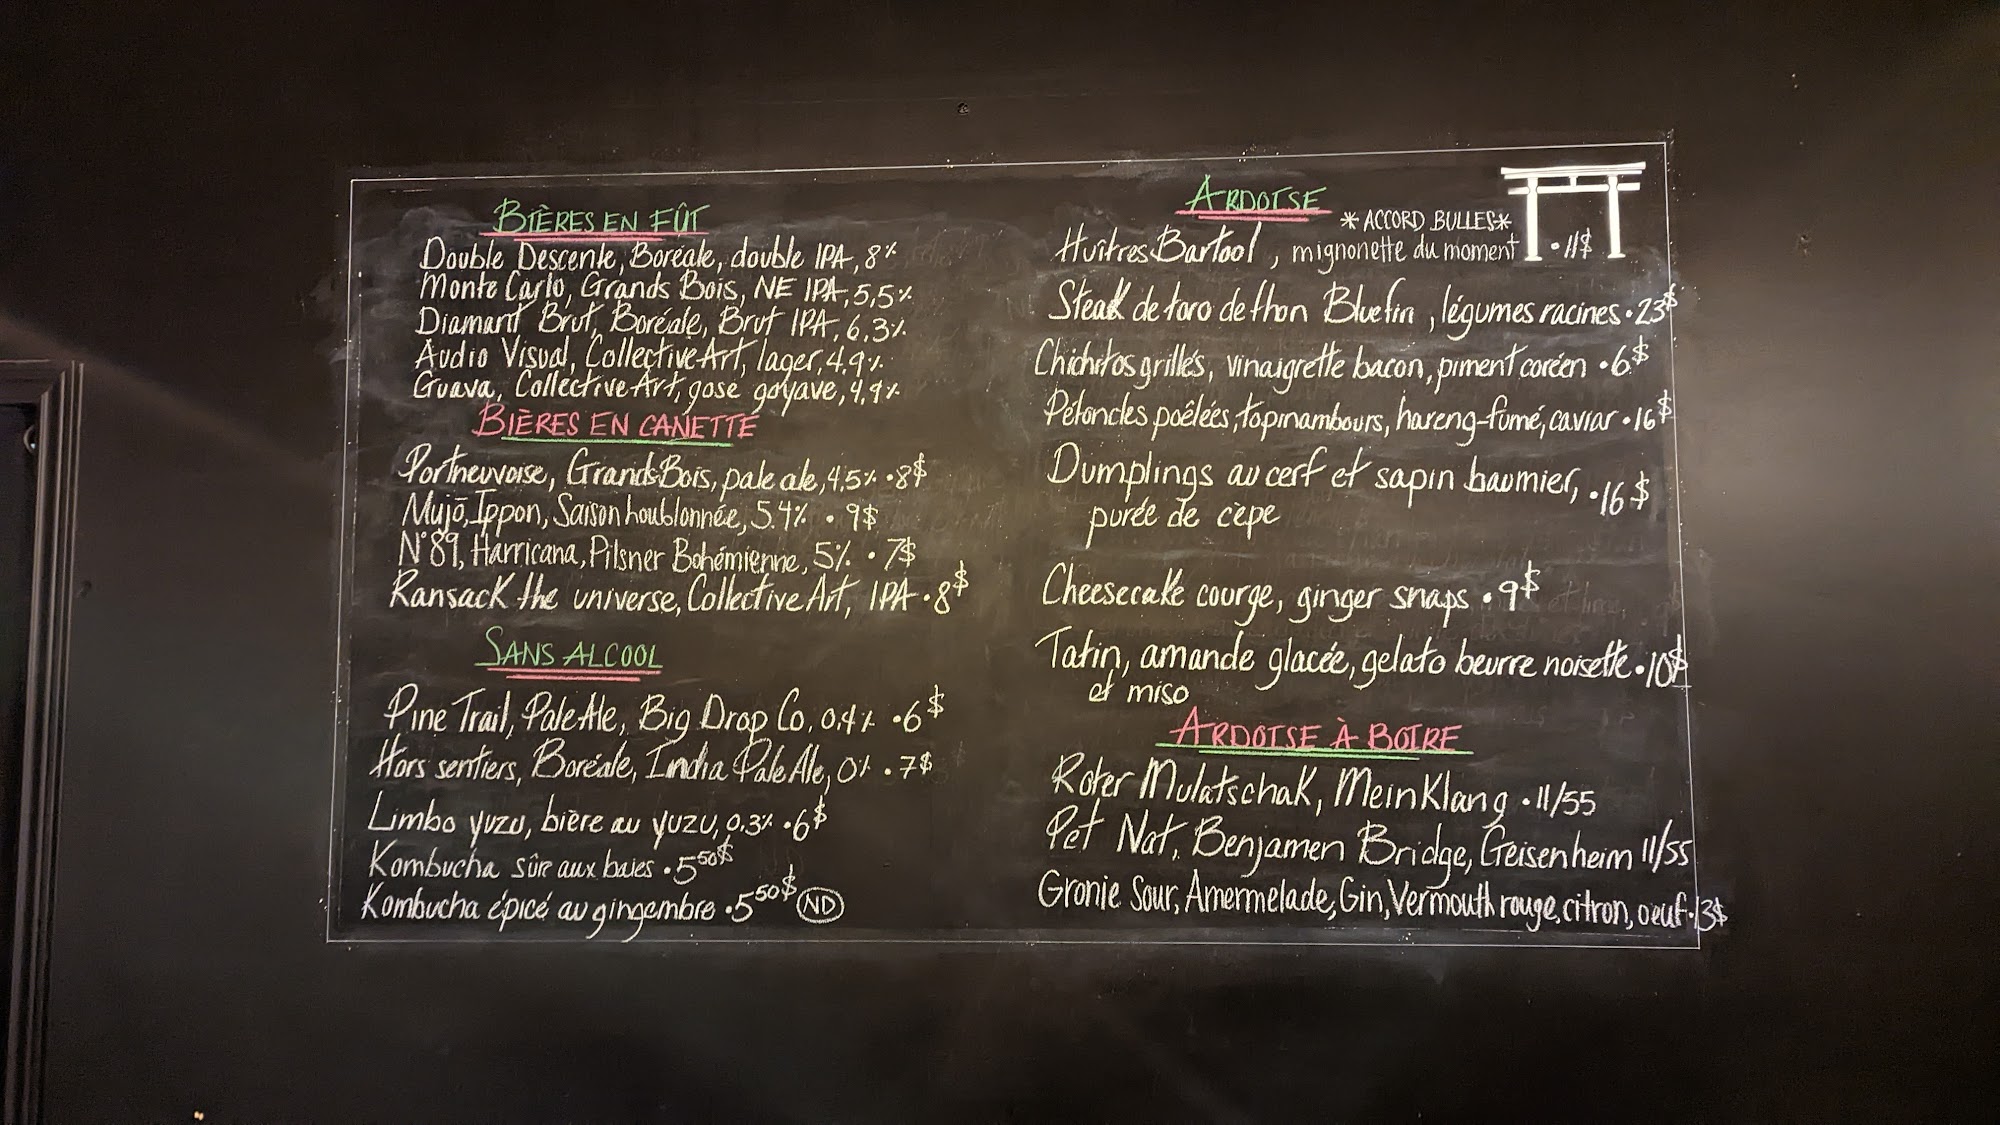 BIÈRES EN FÛT
Double Descente, Boréale, double IPA, 8%
Monte Carlo, Grands Bois, NE IPA, 5,5%
Diamant Brut, Boréale, Brut IPA, 6,3%
Audio Visual, Collective Art, lager, 4,9%
Guava, Collective Art, gose goyave, 4,9%
BIÈRES EN CANETTE
Portneuvoise, Grands Bois, pale ale, 4,5% • 8$
Mujō, Ippon, Saison houblonnée, 5.4% • 9$
N°89, Harricana, Pilsner Bohémienne, 5% • 7$
Ransack the universe, Collective Art, IPA • 8$
SANS ALCOOL
Pine Trail, Pale Ale, Big Drop Co, 0,4% • 6$
Hors sentiers, Boréale, India Pale Ale, 0% • 7$
Limbo yuzu, bière au yuzu, 0,3% • 6$
Kombucha sûre aux baies • 5 50$
Kombucha épicé au gingembre • 5 50$ ND
ARDOISE
*ACCORD BULLES*
Huîtres Bartool, mignonette du moment • 11$
Steak de toro de thon Bluefin, légumes racines • 23$
Chichitos grillés, vinaigrette bacon, piment coréen • 6$
Pétoncles poêlées, topinambours, hareng-fumé, caviar • 16$
Dumplings au cerf et sapin baumier, • 16$
purée de cèpe
Cheesecake courge, ginger snaps • 9$
Tatin, amande glacée, gelato beurre noisette • 10$
et miso
ARDOISE À BOIRE
Roter Mulatschak, MeinKlang • 11/55
Pet Nat, Benjamen Bridge, Geisenheim 11/55
Gronie Sour, Amermelade, Gin, Vermouth rouge, citron, oeuf • 13$